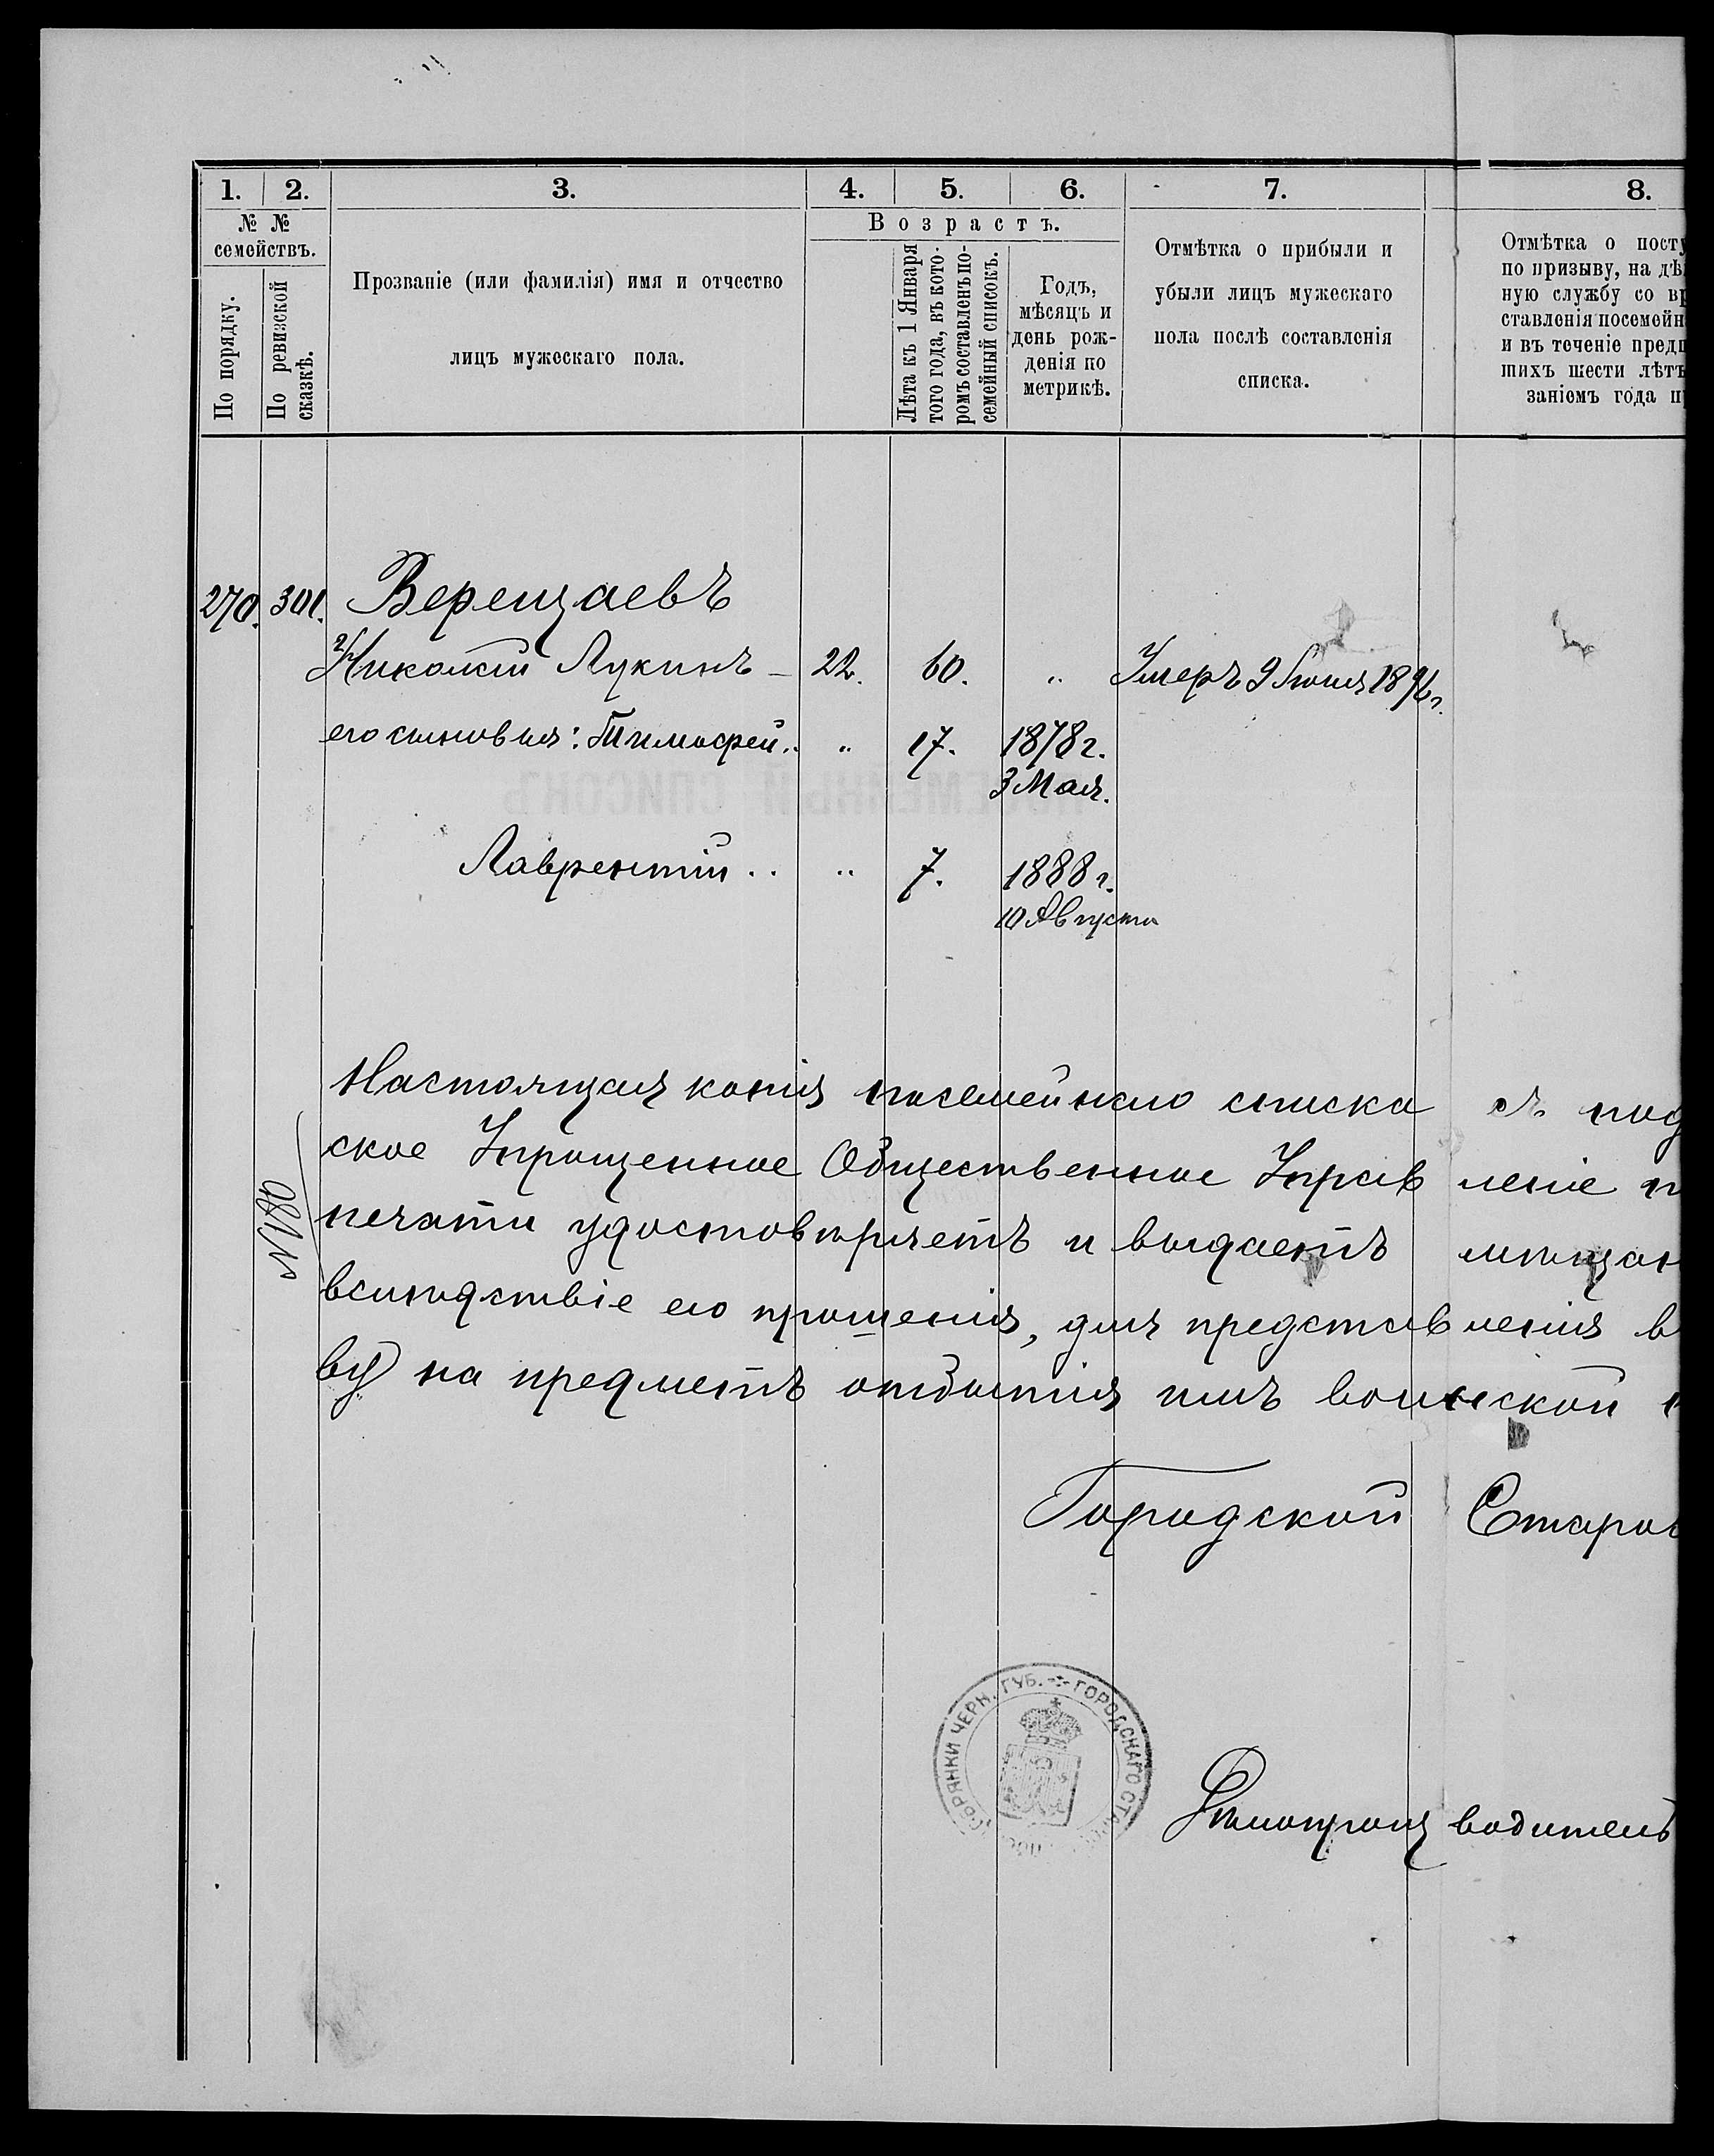 1. 2. 3. 4. 5. 6. 7. 8.
№ № семействъ.
По порядку.
По ревизской сказкѣ.
Прозваніе (или фамилія) имя и отчество
лицъ мужескаго пола.
Возрастъ.
Лѣта къ 1 Января
того года, въ кото-
ромъ составленъ по-
семейный списокъ.
Годъ,
мѣсяцъ и
день рож-
денія по
метрикѣ.
Отмѣтка о прибыли и
убыли лицъ мужескаго
пола послѣ составленія
списка.
Отмѣтка о посту
по призыву, на дѣ
ную службу со вр
ставленія посемейн
и въ теченіе предш
шихъ шести лѣтъ
заніемъ года п
270. 301. Верещаевъ
Николай Лукинъ – 22. 60. „ Умеръ 9 Іюня 1896 г.
его сыновья: Тимофей.. „ 17. 1878 г.
3 Мая.
Лаврентій .. „ 7. 1888 г.
10 Августа
Настоящая копія посемейнаго списка съ под
ское Упрощенное Общественное Управленіе п
печати удостовѣряетъ и выдаетъ мѣщан
вслѣдствіе его прошенія, для представленія в
ву на предметъ отбытія имъ воинской п
№ 180
Городской Старос
ДОБРЯНКИ ЧЕРН. ГУБ. ГОРОДСКАГО СТАРОС
Дѣлопроизводитель